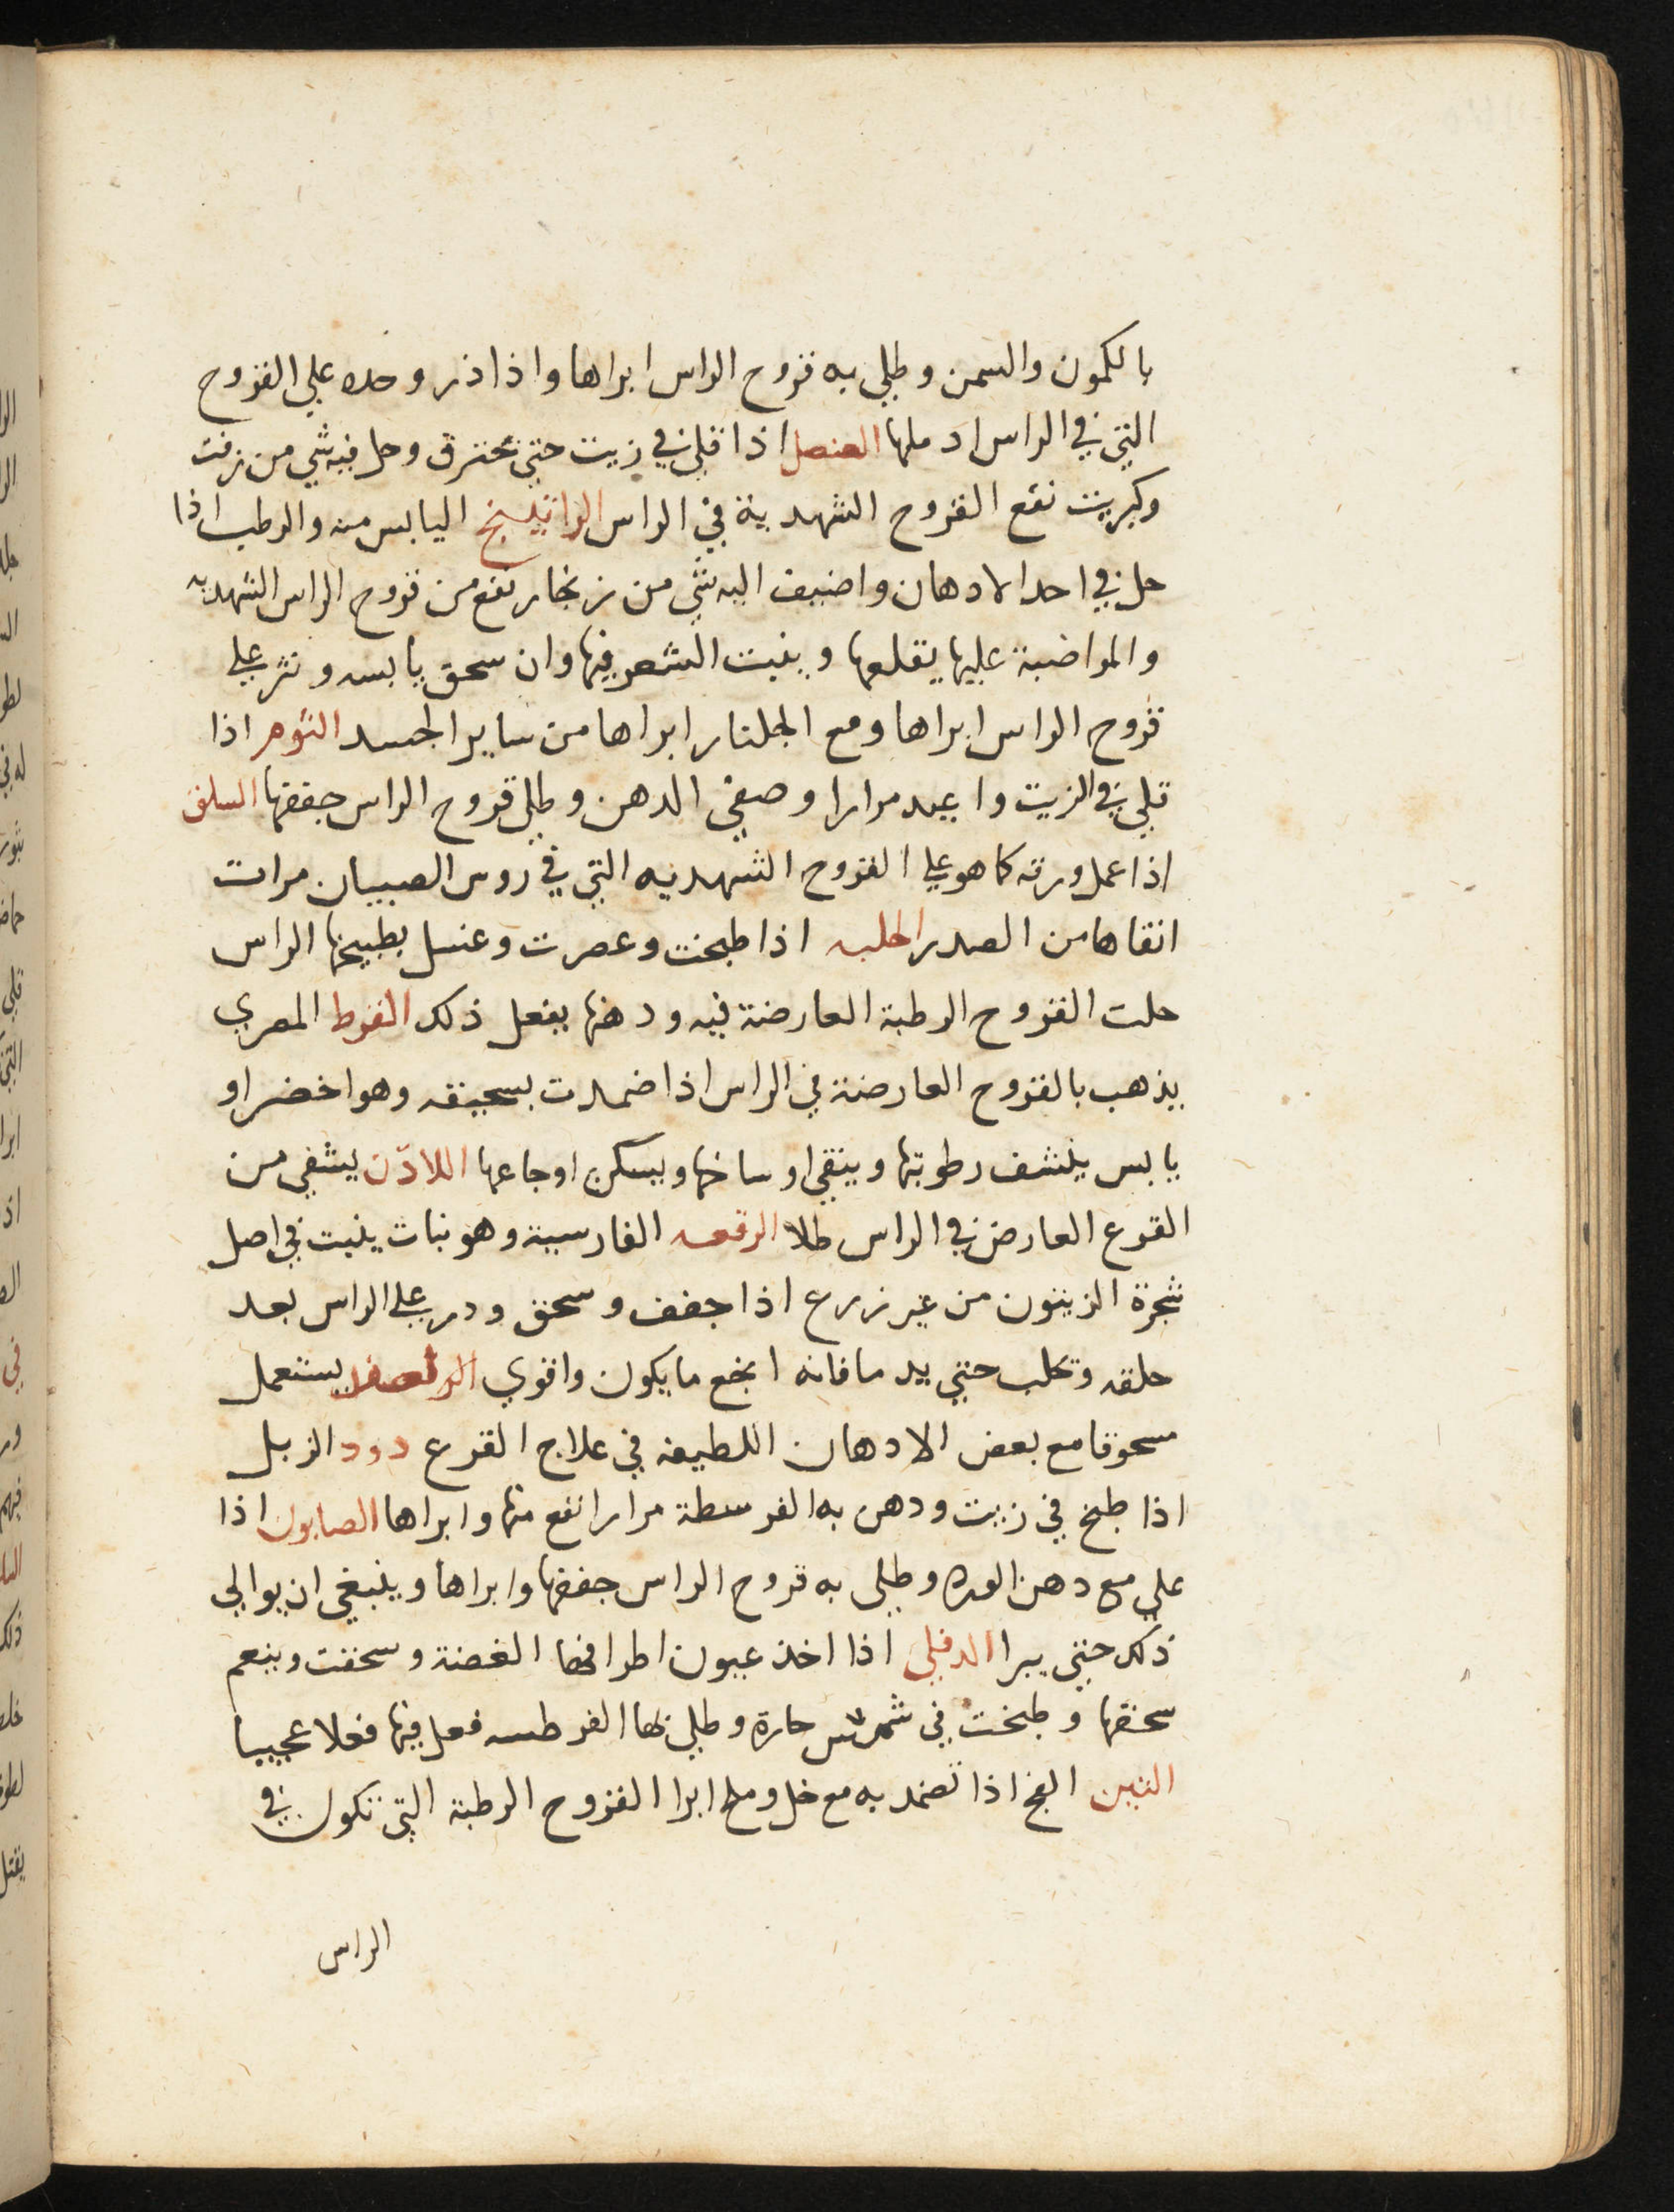 بالكمون والسمن وطلي به قروح الراس ابراها واذا ذر وحده علي القروح
التي في الراس ادملها العنصل اذا قلي في زيت حتي يحترق وحل فيه شي من زفت
وكبريت نفع القروح الشهدية في الراس الراتينج اليابس منه والرطب اذا
حل في احد الادهان واضيف اليه شي من زنجار نفع من قروح الراس الشهديه
والمواضبة عليها يقلعها وينبت الشعر فيها وان سحق يابسه ونثر علي
قروح الراس ابراها ومع الجلنار ابراها من ساير الجسد الثوم اذا
قلي في الزيت واعيد مرارا وصفي الدهن وطلي قروح الراس جففها السلق
اذا عمل ورقه كما هو علي القروح الشهديه التي في روس الصبيان مرات
انقاها من الصدر الحلبه اذا طبخت وعصرت وغسل بطبيخها الراس
حلت القروح الرطبة العارضة فيه ودهنها يفعل ذلك القرط المصري
يذهب بالقروح العارضة في الراس اذا ضمدت بسحيقه وهو اخضر او
يابس ينشف رطوبتها وينقي اوساخها ويسكن اوجاعها اللاذن يشفي من
القرع العارض في الراس طلا الرقعه الفارسية وهو نبات ينبت في اصل
شجرة الزيتون من غير زرع اذا جفف وسحق ودر علي الراس بعد
حلقه وتحلب حتي يدما فانه انجع ما يكون واقوي يستعمل
مسحوقا مع بعض الادهان اللطيفه في علاج القرع دود الزبل
اذا طبخ في زيت ودهن به الفرسطة مرارا نفع منها وابراها الصابون اذا
علي مع دهن الورد وطلي به قروح الراس جففها وابراها وينبغي ان يوالي
ذلك حتي يبرا الدفلي اذا اخذ عيون اطرافها الغضنة وسحقت وينعم
سحقها وطبخت في شمس حارة وطلي بها الفرطسه فعل فيها فعلا عجيبا
التين الفج اذا تضمد به مع خل وملح ابرا القروح الرطبة التي تكون في
الراس